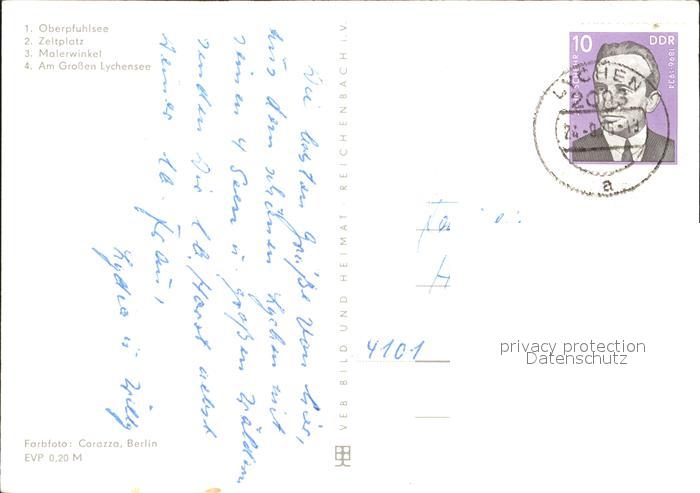 1. Oberpfuhlsee
2. Zeltplatz
3. Malerwinkel
4. Am Großen Lychensee
Die besten Grüße von hier,
aus dem schönen Lychen mit
seinen 4 Seen u. großen Wäldern
senden Dir lb. Horst nebst
Deiner lb. Frau,
Lydia u. Willy
VEB BILD UND HEIMAT · REICHENBACH I. V.
10
DDR
1896-1934
LYCHEN
2082
a
4101
privacy protection
Datenschutz
Farbfoto: Corazza, Berlin
EVP 0,20 M